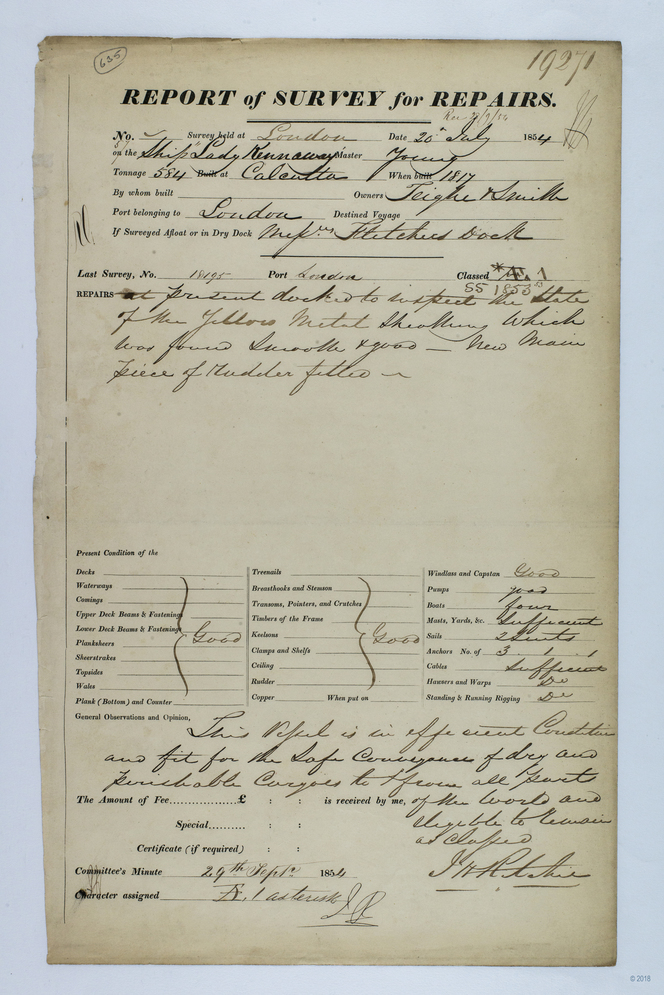 635
19271
REPORT of SURVEY for REPAIRS.
No. Survey held at London Date 20th July 1854
on the Ship "Lady Kennaway" Master Young
Tonnage 584 Built at Calcutta When built 1817
By whom built Owners Teighe & Smith
Port belonging to London Destined Voyage
If Surveyed Afloat or in Dry Dock Messrs Fletchers Dock
Last Survey, No. 18195 Port London Classed Æ 1
SS 1853
REPAIRS at present docked to inspect the state
of the Yellow Metal Sheathing which
was found Smooth & good — New Main
piece of Rudder fitted
Present Condition of the
Decks
Waterways
Comings
Upper Deck Beams & Fastenings
Lower Deck Beams & Fastenings Good
Planksheers
Sheerstrakes
Topsides
Wales
Plank (Bottom) and Counter
Treenails
Breasthooks and Stemson
Transoms, Pointers, and Crutches
Timbers of the Frame
Keelsons Good
Clamps and Shelfs
Ceiling
Rudder
Copper When put on
Windlass and Capstan Good
Pumps good
Boats four
Masts, Yards, &c. Sufficient
Sails 2 Suits
Anchors No. of 3 1 1
Cables Sufficient
Hawsers and Warps Do
Standing & Running Rigging Do
General Observations and Opinion,
This Vessel is in efficient Condition
and fit for the Safe Conveyance of dry and
perishable Cargoes to & from all parts
of the World and
eligible to remain
as classed
The Amount of Fee £ : : is received by me,
Special : :
Certificate (if required) : :
Committee's Minute 29th Septr 1854
Character assigned Æ 1 asterisk
© 2018